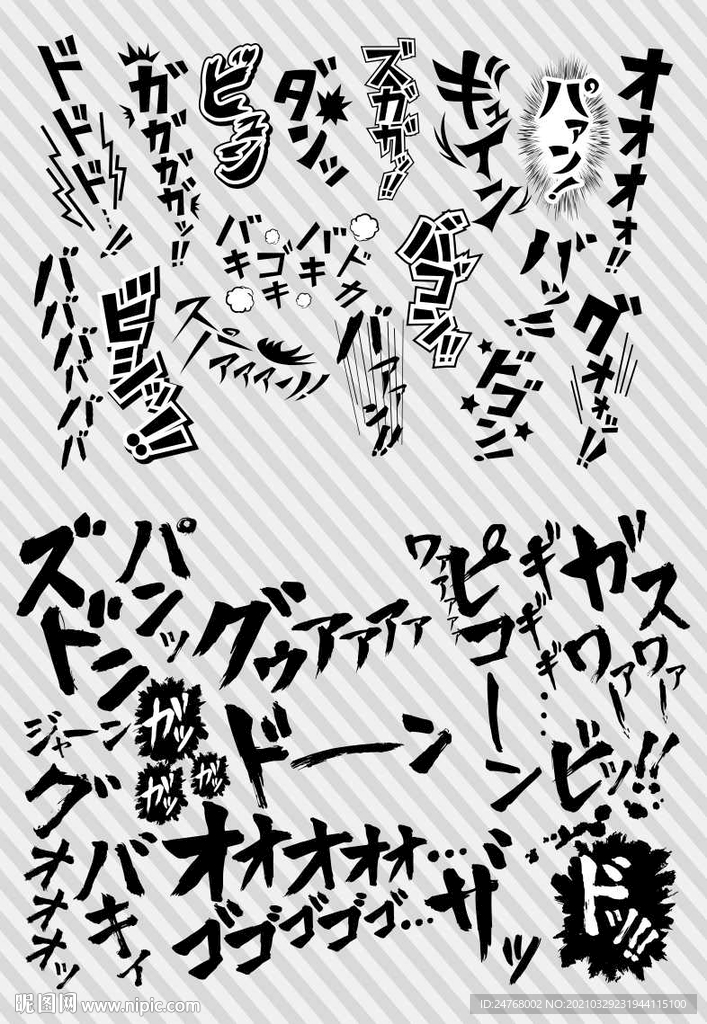 ドドドド…!!
ガガガガガッ!!
ビュッ
ダンッ
ズガガッ!!
ギュイン
パァン!
オオオオォ!!
ババババババ
ビシッ!!
バキ
ゴキ
バキ
ドカ
スパーァァァァン!!
バァァァン!!
バゴン!!
バッ!!
ドゴン!
グオォォッ!!
ズドン
パンッ
グゥアァアァ
ワァァァァ
ピコーン
ギギギ…
ガガッ
ガッ
ガッ
ジャーン
ドーン
ワァーワァー
ビッ!!
グオオオッ
バキィ
オオオオオ…
ゴゴゴゴゴ…
ザッ
ドッ!!
昵图网 www.nipic.com
ID:24768002 NO:20210329231944115100